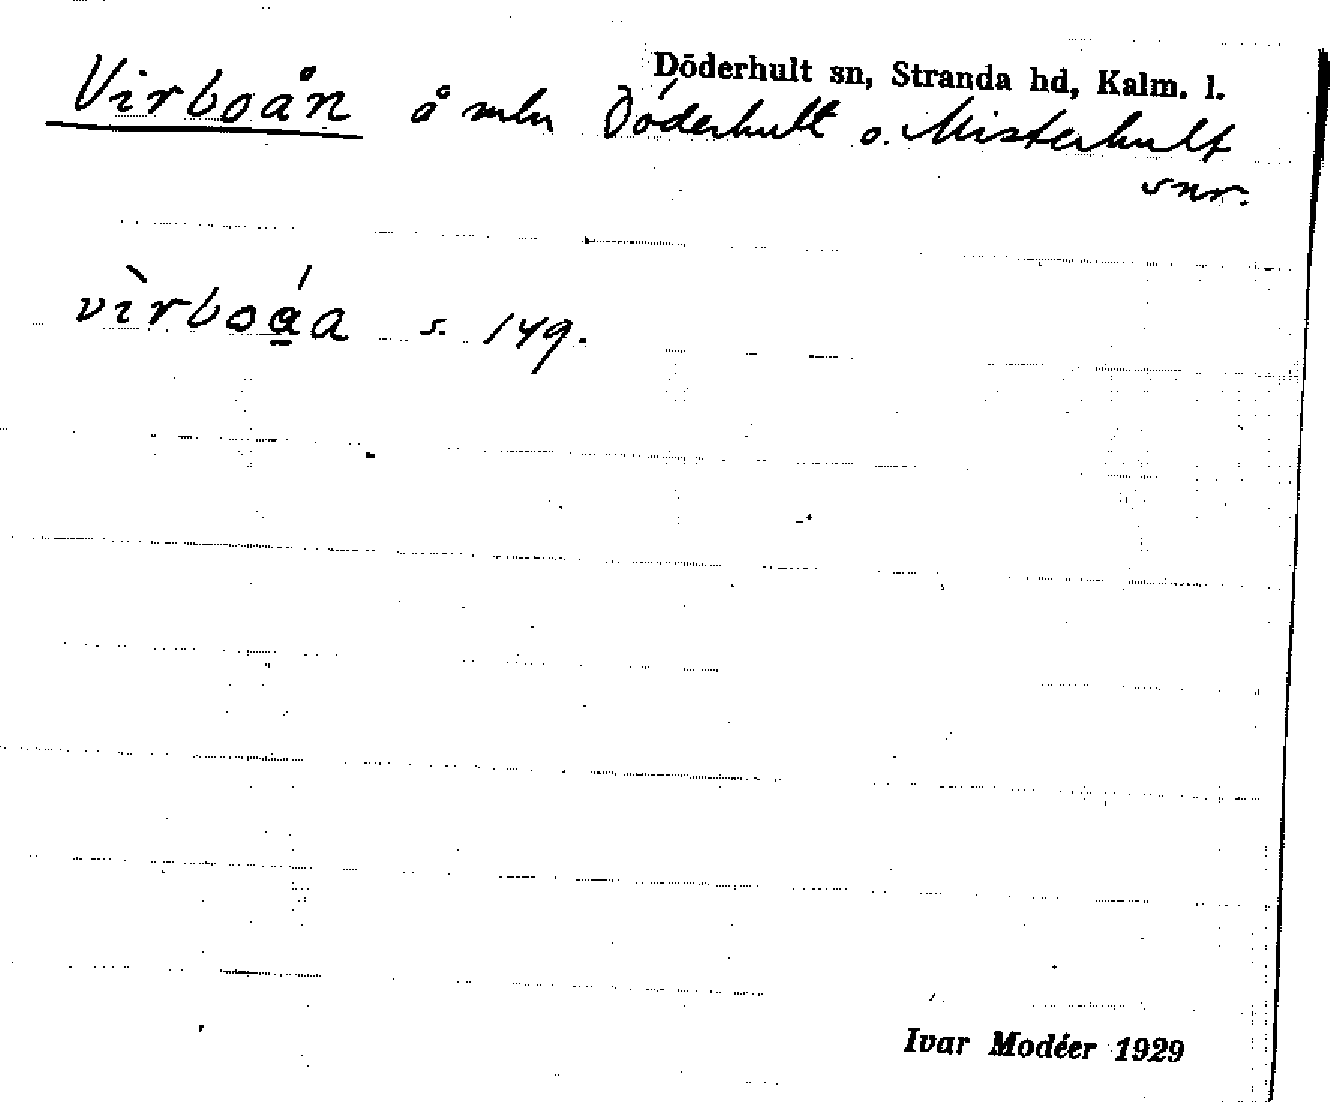 Döderhult sn, Stranda hd, Kalm. l.
Virboån å mln Döderhult o. Misterhult
snr.
vìrboáa s. 149.
Ivar Modéer 1929